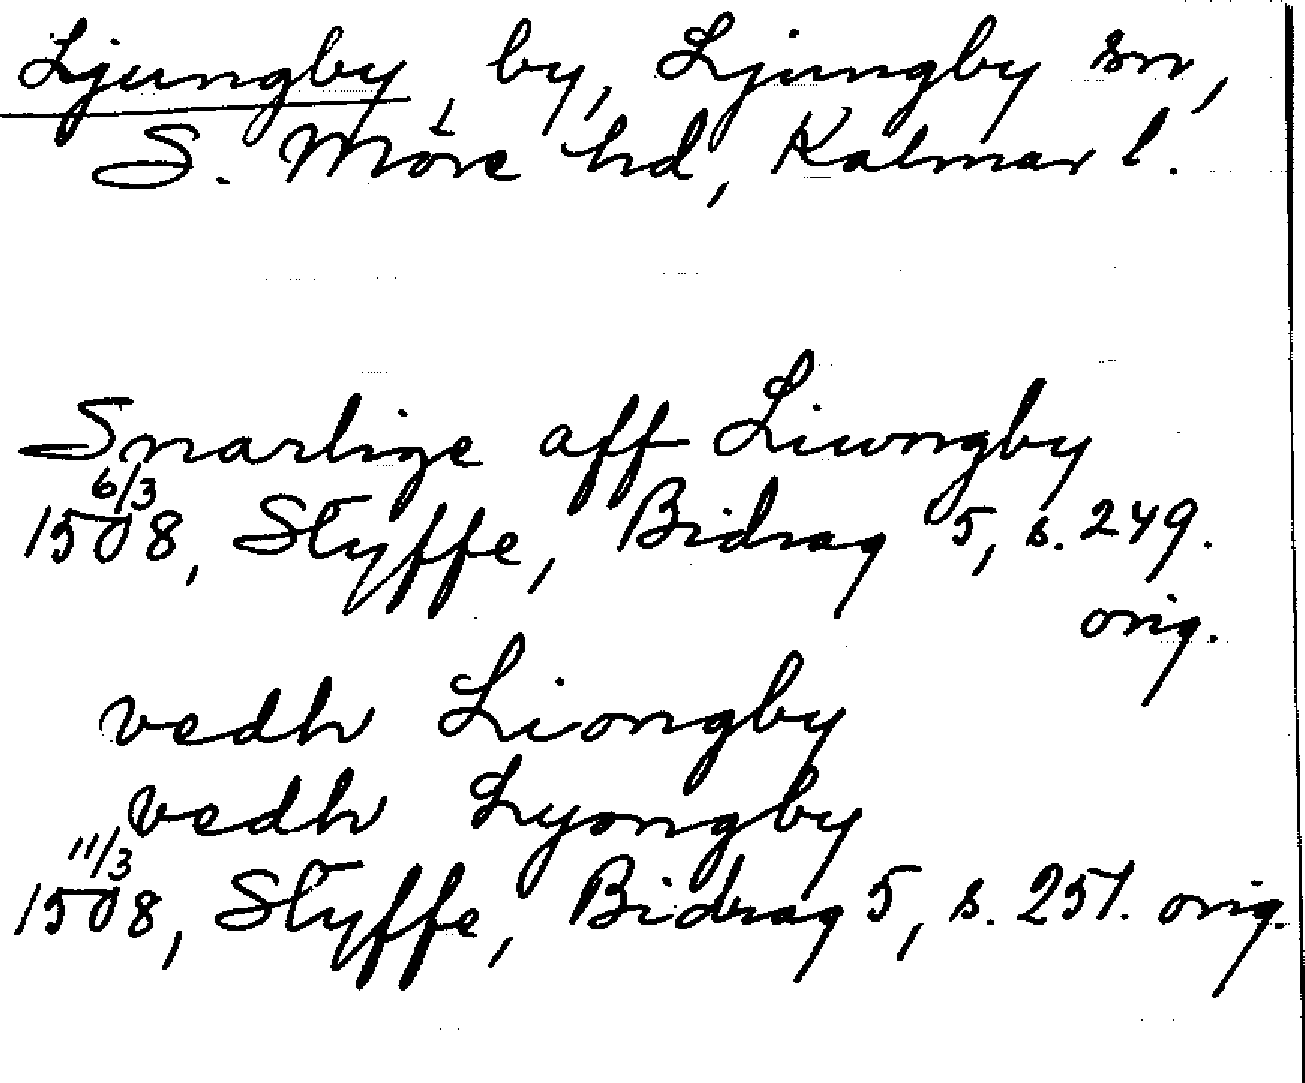 Ljungby, by, Ljungby sn,
S. Möre hd, Kalmar l.
Snarlige aff Liwngby
6/3
1508, Styffe, Bidrag 5, s. 249.
orig.
vedh Liongby
vedh Lyongby
11/3
1508, Styffe, Bidrag 5, s. 251. orig.